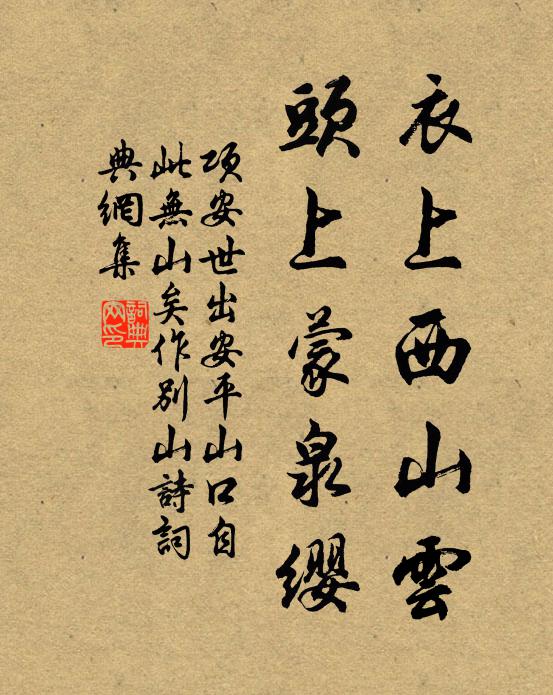 衣上西山雲
頭上蒙泉纓
項安世出安平山口自
此無山矣作別山詩詞
典網集
詞典
網印